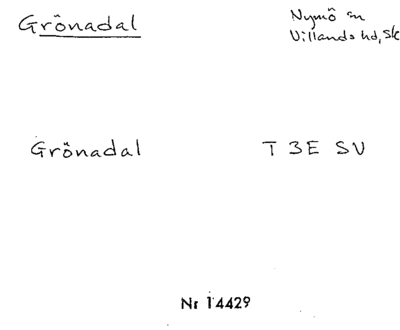 Grönadal
Nymö sn
Villands hd, Sk
Grönadal T 3E SV
Nr 14429